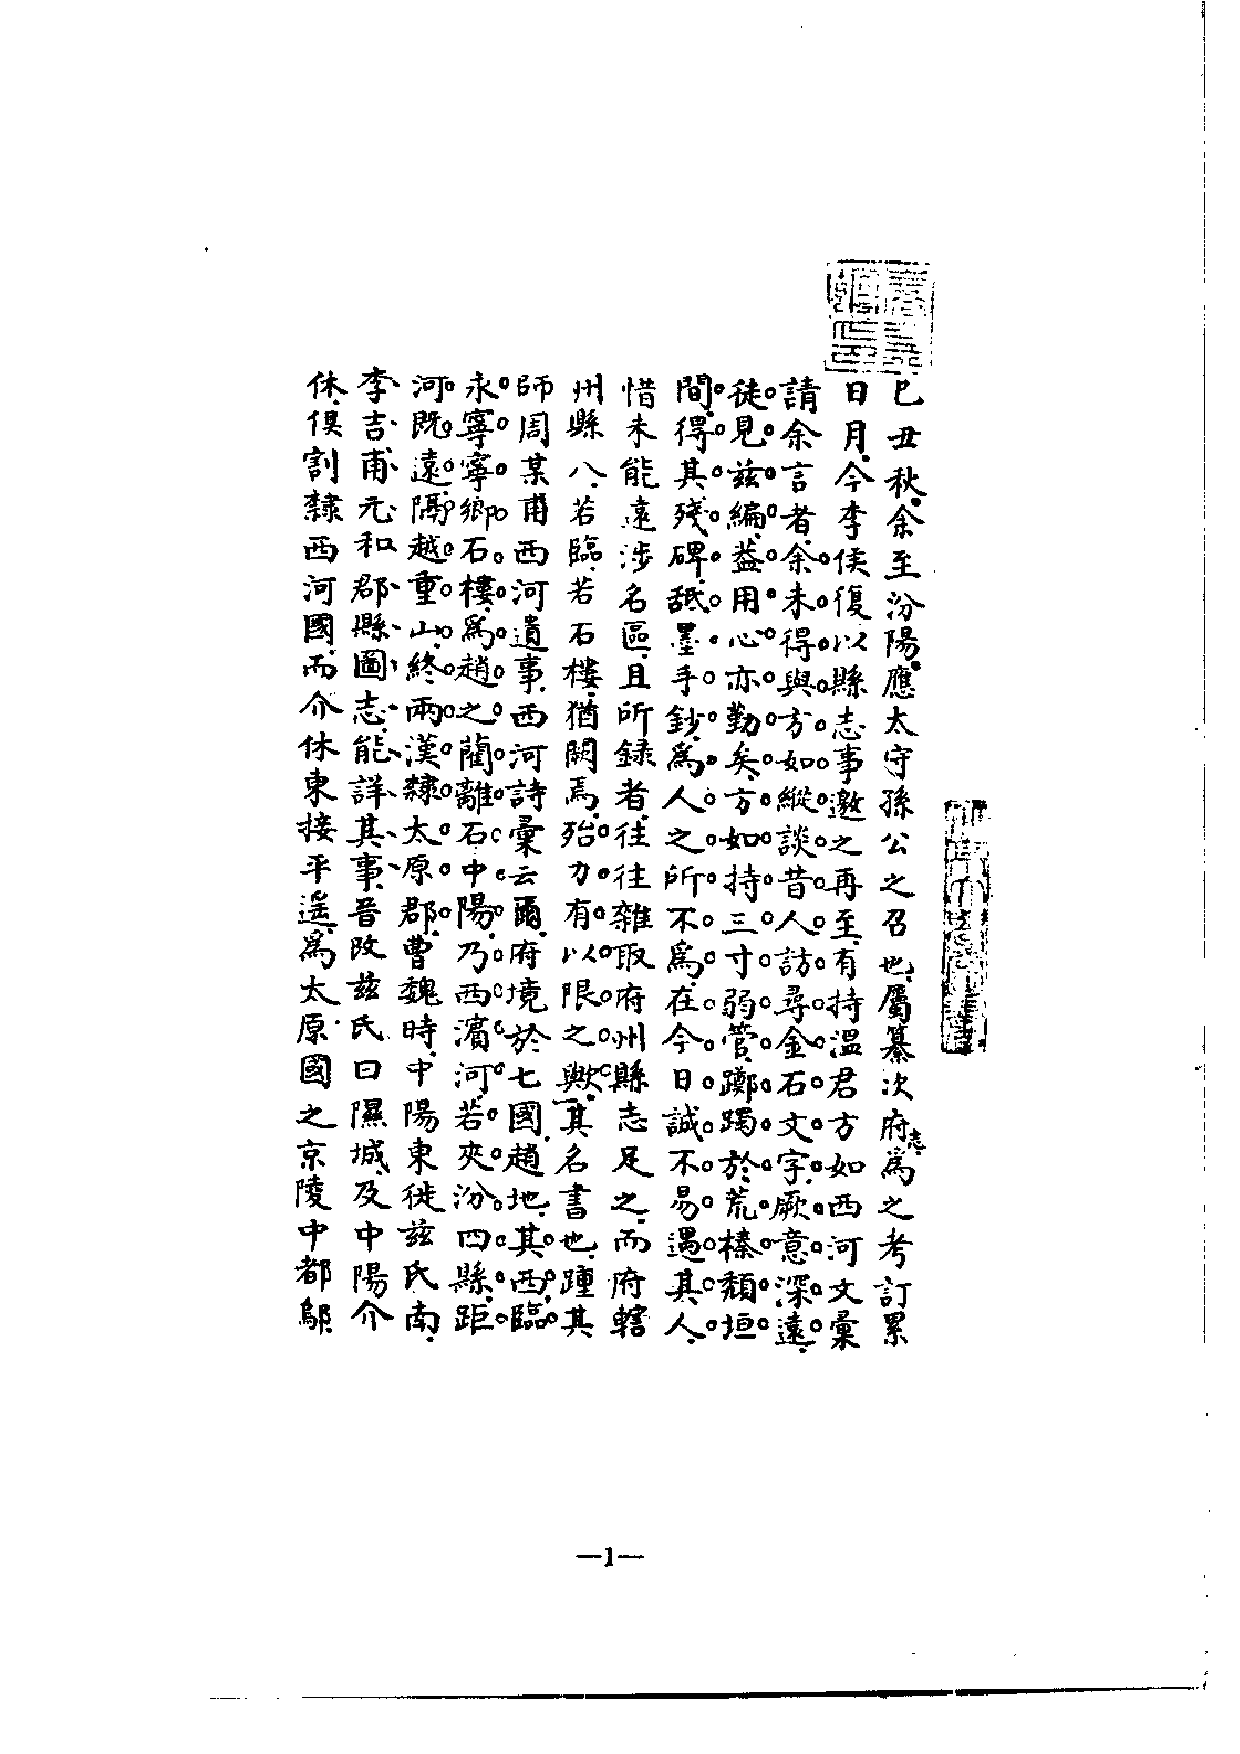 己丑秋余至汾陽應太守孫公之召也屬纂次府志為之考訂累
日月今李侯復以縣志事邀之再至有持溫君方如西河文彙
請余言者余未得與方如縱談昔人訪尋金石文字厥意深遠
徒見茲編益用心亦勤矣方如持三寸弱管躑躅於荒榛頹垣
間得其殘碑舐墨手鈔為人之所不為在今日誠不易遇其人
惜未能遠涉名區且所錄者往往雜取府州縣志足之而府轄
州縣八若臨若石樓猶闕焉殆力有以限之歟其名書也踵其
師周某甫西河遺事西河詩彙云爾府境於七國趙地其西臨
永寧寧鄉石樓為趙之藺離石中陽乃西濱河若夾汾四縣距
河既遠隔越重山終兩漢隸太原郡曹魏時中陽東徙茲氏南
李吉甫元和郡縣圖志能詳其事晉改茲氏曰隰城及中陽介
休俱割隸西河國而介休東接平遙為太原國之京陵中都鄔
—1—